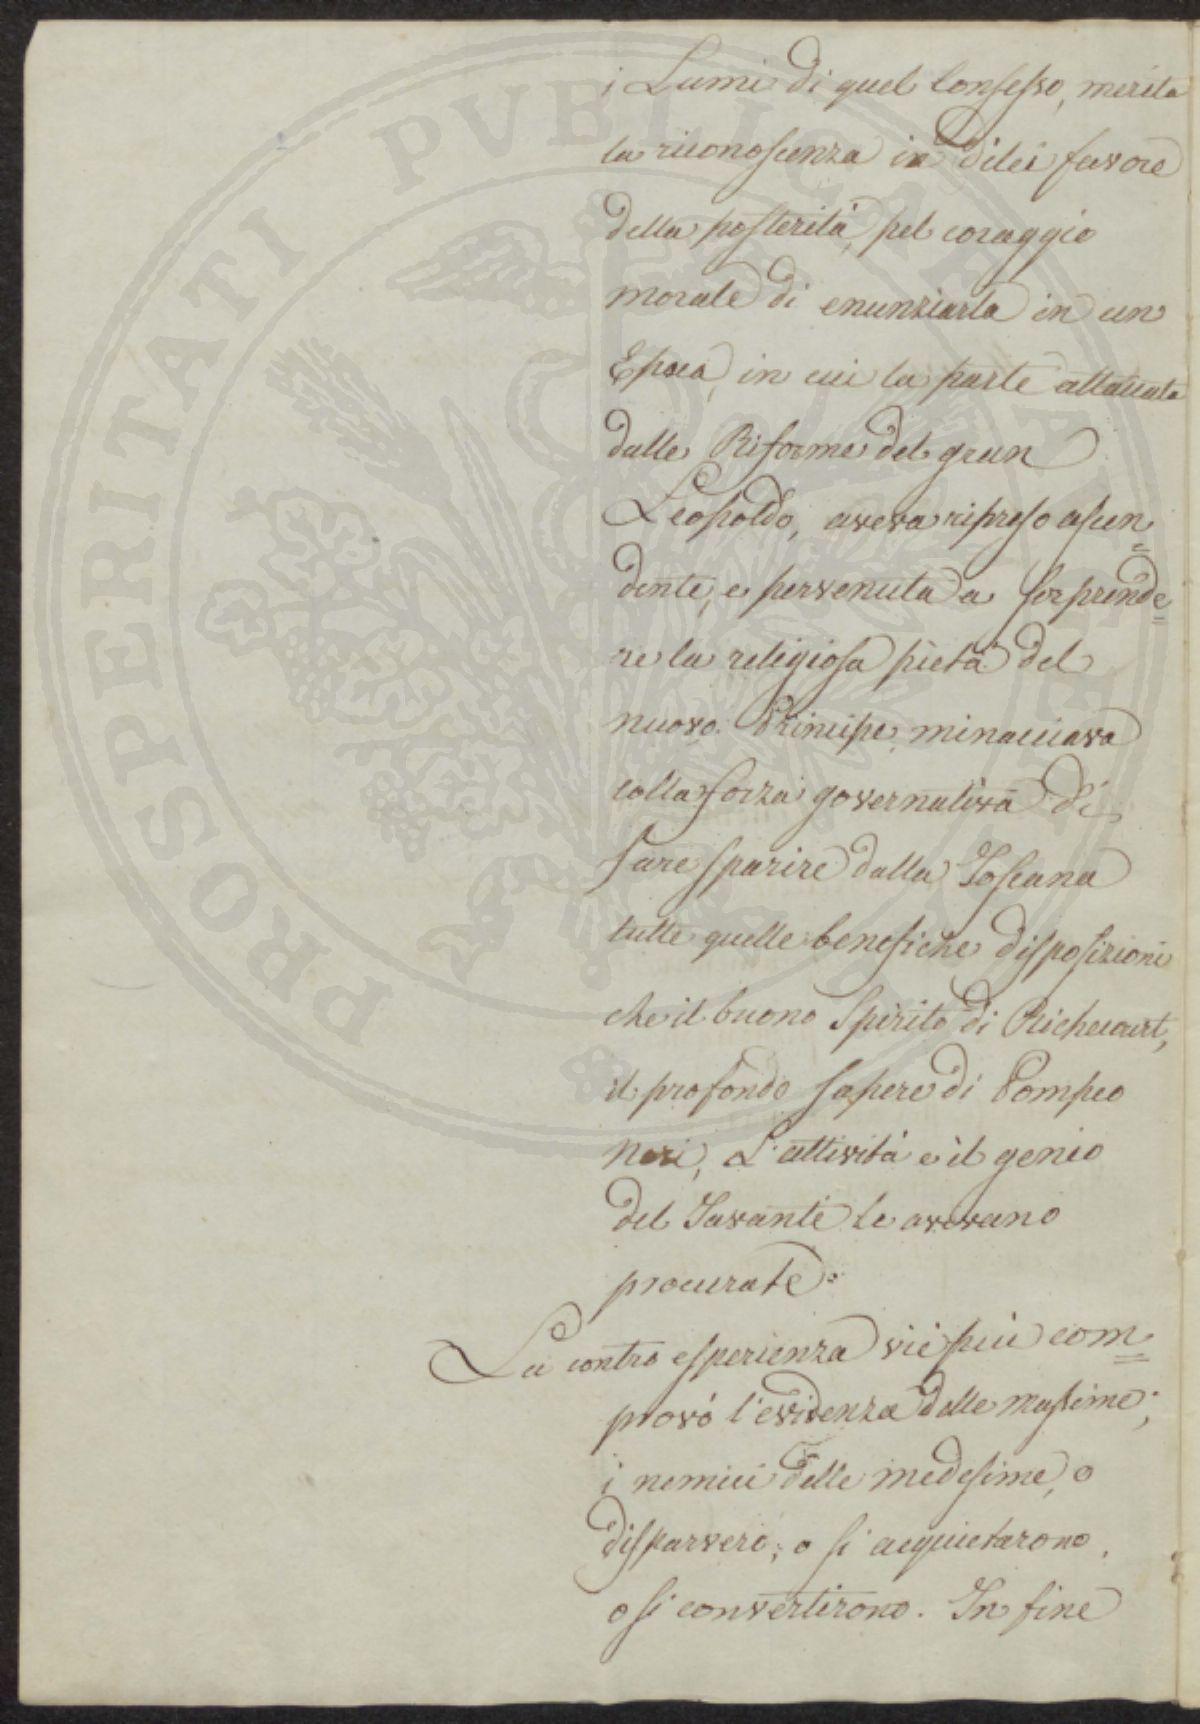 i Lumi di quel Consesso, merita
la riconoscenza in di lei favore
della posterità, pel coraggio
morale di enunziarla in un
Epoca, in cui la parte attaccata
dalle Riforme del gran
Leopoldo, aveva ripreso ascen=
dente, e pervenuta a sorprende=
re la religiosa pietà del
nuovo Principe, minacciava
colla forza governativa di
fare sparire dalla Toscana
tutte quelle benefiche disposizioni
che il buono Spirito di Richecourt,
il profondo sapere di Pompeo
Neri, L'attività e il genio
del Tavanti le avevano
procurate.
La contro esperienza viepiù com=
provò l'evidenza delle massime;
i nemici delle medesime, o
disparvero, o si acquietarono,
o si convertirono. In fine
PROSPERITATI PUBLICAE AUGENDAE